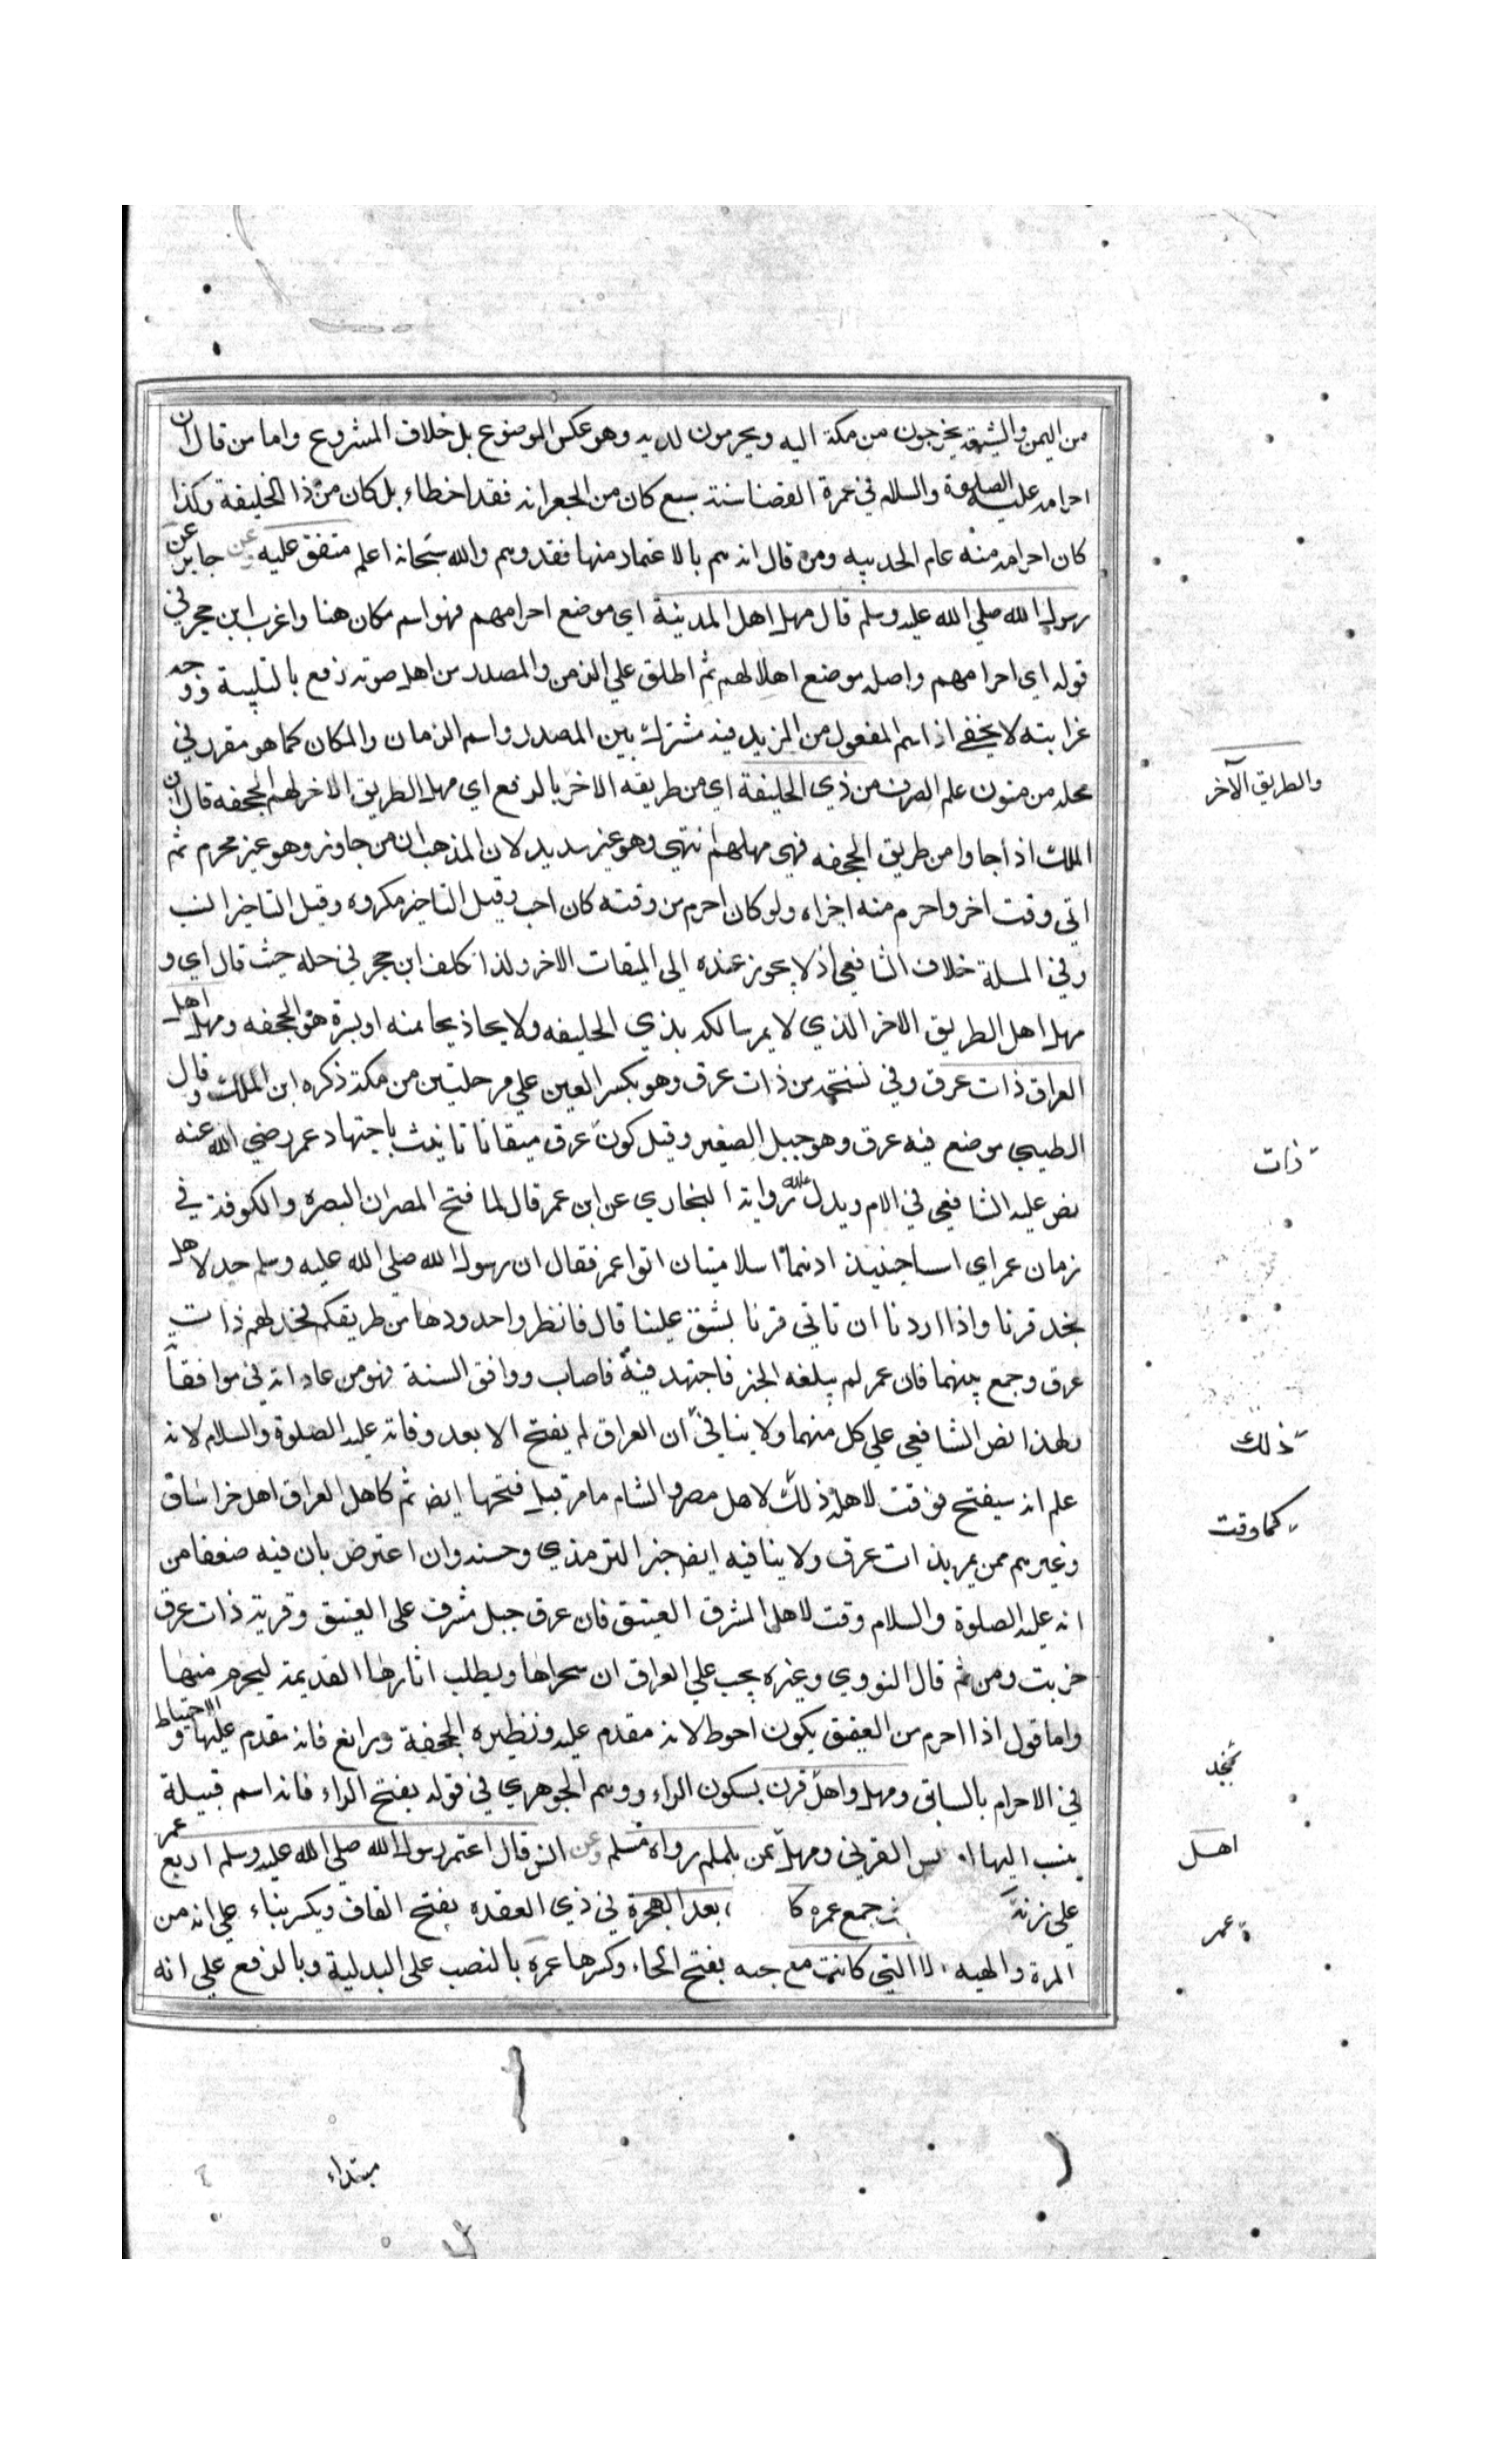 من اليمن والشيعة يخرجون من مكة اليه ويحرمون لديه وهو عكس الموضوع بل خلاف المشروع واما من قال ان
احرامه عليه الصلوة والسلام في عمرة القضا سنة سبع كان من الجعرانه فقد اخطاء بل كان من ذا الحليفة وكذا
كان احرامه منه عام الحديبيه ومن قال انه هم بالاعتماد منها فقد وهم والله سبحانه اعلم متفق عليه وعن جابر عن
رسول الله صلي الله عليه وسلم قال مهل اهل المدينة اي موضع احرامهم فهو اسم مكان هنا واغرب ابن حجر في
قوله اي احرامهم واصله موضع اهلالهم ثم اطلق علي الزمن والمصدر من اهل صوته رفع بالتلبية ووجه
غرابته لا يخفي اذ اسم المفعول من المزيد فيه مشترك بين المصدر واسم الزمان والمكان كما هو مقرر في
محله من متون علم الصرف من ذي الحليفة اي من طريقه الاخر بالرفع اي مهل الطريق الاخر لهم الجحفه قال ابن
الملك اذا جاوا من طريق الجحفه فهي مهلهم انتهي وهو غير سديد لان المذهب ان من جاوز وهو غير محرم ثم
اتي وقت اخر واحرم منه اجزاه ولو كان احرم من وقته كان احب وقيل التاخير مكروه وقيل التاخير انسب
وفي المسلة خلاف الشافعي اذ لا يجوز عنده الي الميقات الاخر ولذا تكلف ابن حجر في حله حيث قال اي و
مهل اهل الطريق الاخر الذي لا يمر سالكه بذي الحليفه ولا يحاذيها منه او يسره هو الجحفه ومهل اهل
العراق ذات عرق وفي نسخة من ذات عرق وهو بكسر العين علي مرحلتين من مكة ذكره ابن الملك وقال
الطيبي موضع فيه عرق وهو جبيل الصغير وقيل كون عرق ميقاتا ثابت باجتهاد عمر رضي الله عنه
نص عليه الشافعي في الام ويدل عليه رواية البخاري عن ابن عمر قال لما فتح المصران البصره والكوفة في
زمان عمر اي اسسا حينئذ اذ هما اسلاميتان اتوا عمر فقال ان رسول الله صلي الله عليه وسلم حد لاهل
نجد قرنا واذا اردنا ان تاتي قرنا يشق علينا قال فانظروا حدودها من طريقكم فحد لهم ذات
عرق وجمع بينهما فان عمر لم يبلغه الخبر فاجتهد فيه فاصاب ووافق السنة فهو من عاداته في موافقا
ولهذا نص الشافعي علي كل منهما ولا ينافي ان العراق لم يفتح الا بعد وفاته عليه الصلوة والسلام لانه
علم انه سيفتح فوقت لاهله ذلك لاهل مصر والشام ما مر قبل فتحها ايضا ثم كاهل العراق اهل خراسان
وغيرهم ممن يمر بذات عرق ولا ينافيه ايضا خبر الترمذي وحسنه وان اعترض بان فيه ضعفا من
انه عليه الصلوة والسلام وقت لاهل المشرق العقيق فان عرق جبل مشرف علي العقيق وقرية ذات عرق
خربت ومن ثم قال النووي وغيره يجب علي العراق ان يتحراها ويطلب اثارها القديمة ليحرم منها
واما قول اذا احرم من العقيق يكون احوط لانه مقدم عليه ونظيره الجحفة ورابغ فانه مقدم عليها والاحتياط
في الاحرام بالسابق ومهل واهل قرن بسكون الراء ووهم الجوهري في قوله بفتح الراء فانه اسم قبيلة
ينسب اليها اويس القرني ومهل يمن يلملم رواه مسلم وعن انس قال اعتمر رسول الله صلي الله عليه وسلم اربع عمر
علي زنة جمع عمرة بعد الهجرة في ذي القعده بفتح القاف ويكسر بناء علي انه من
المرة والهيه الا التي كانت مع حجه بفتح الحاء وكسرها عمرة بالنصب علي البدلية وبالرفع علي انه
والطريق الآخر
ذات
ذلك
كما وقت
نجد
اهل
عمر
مبتداء